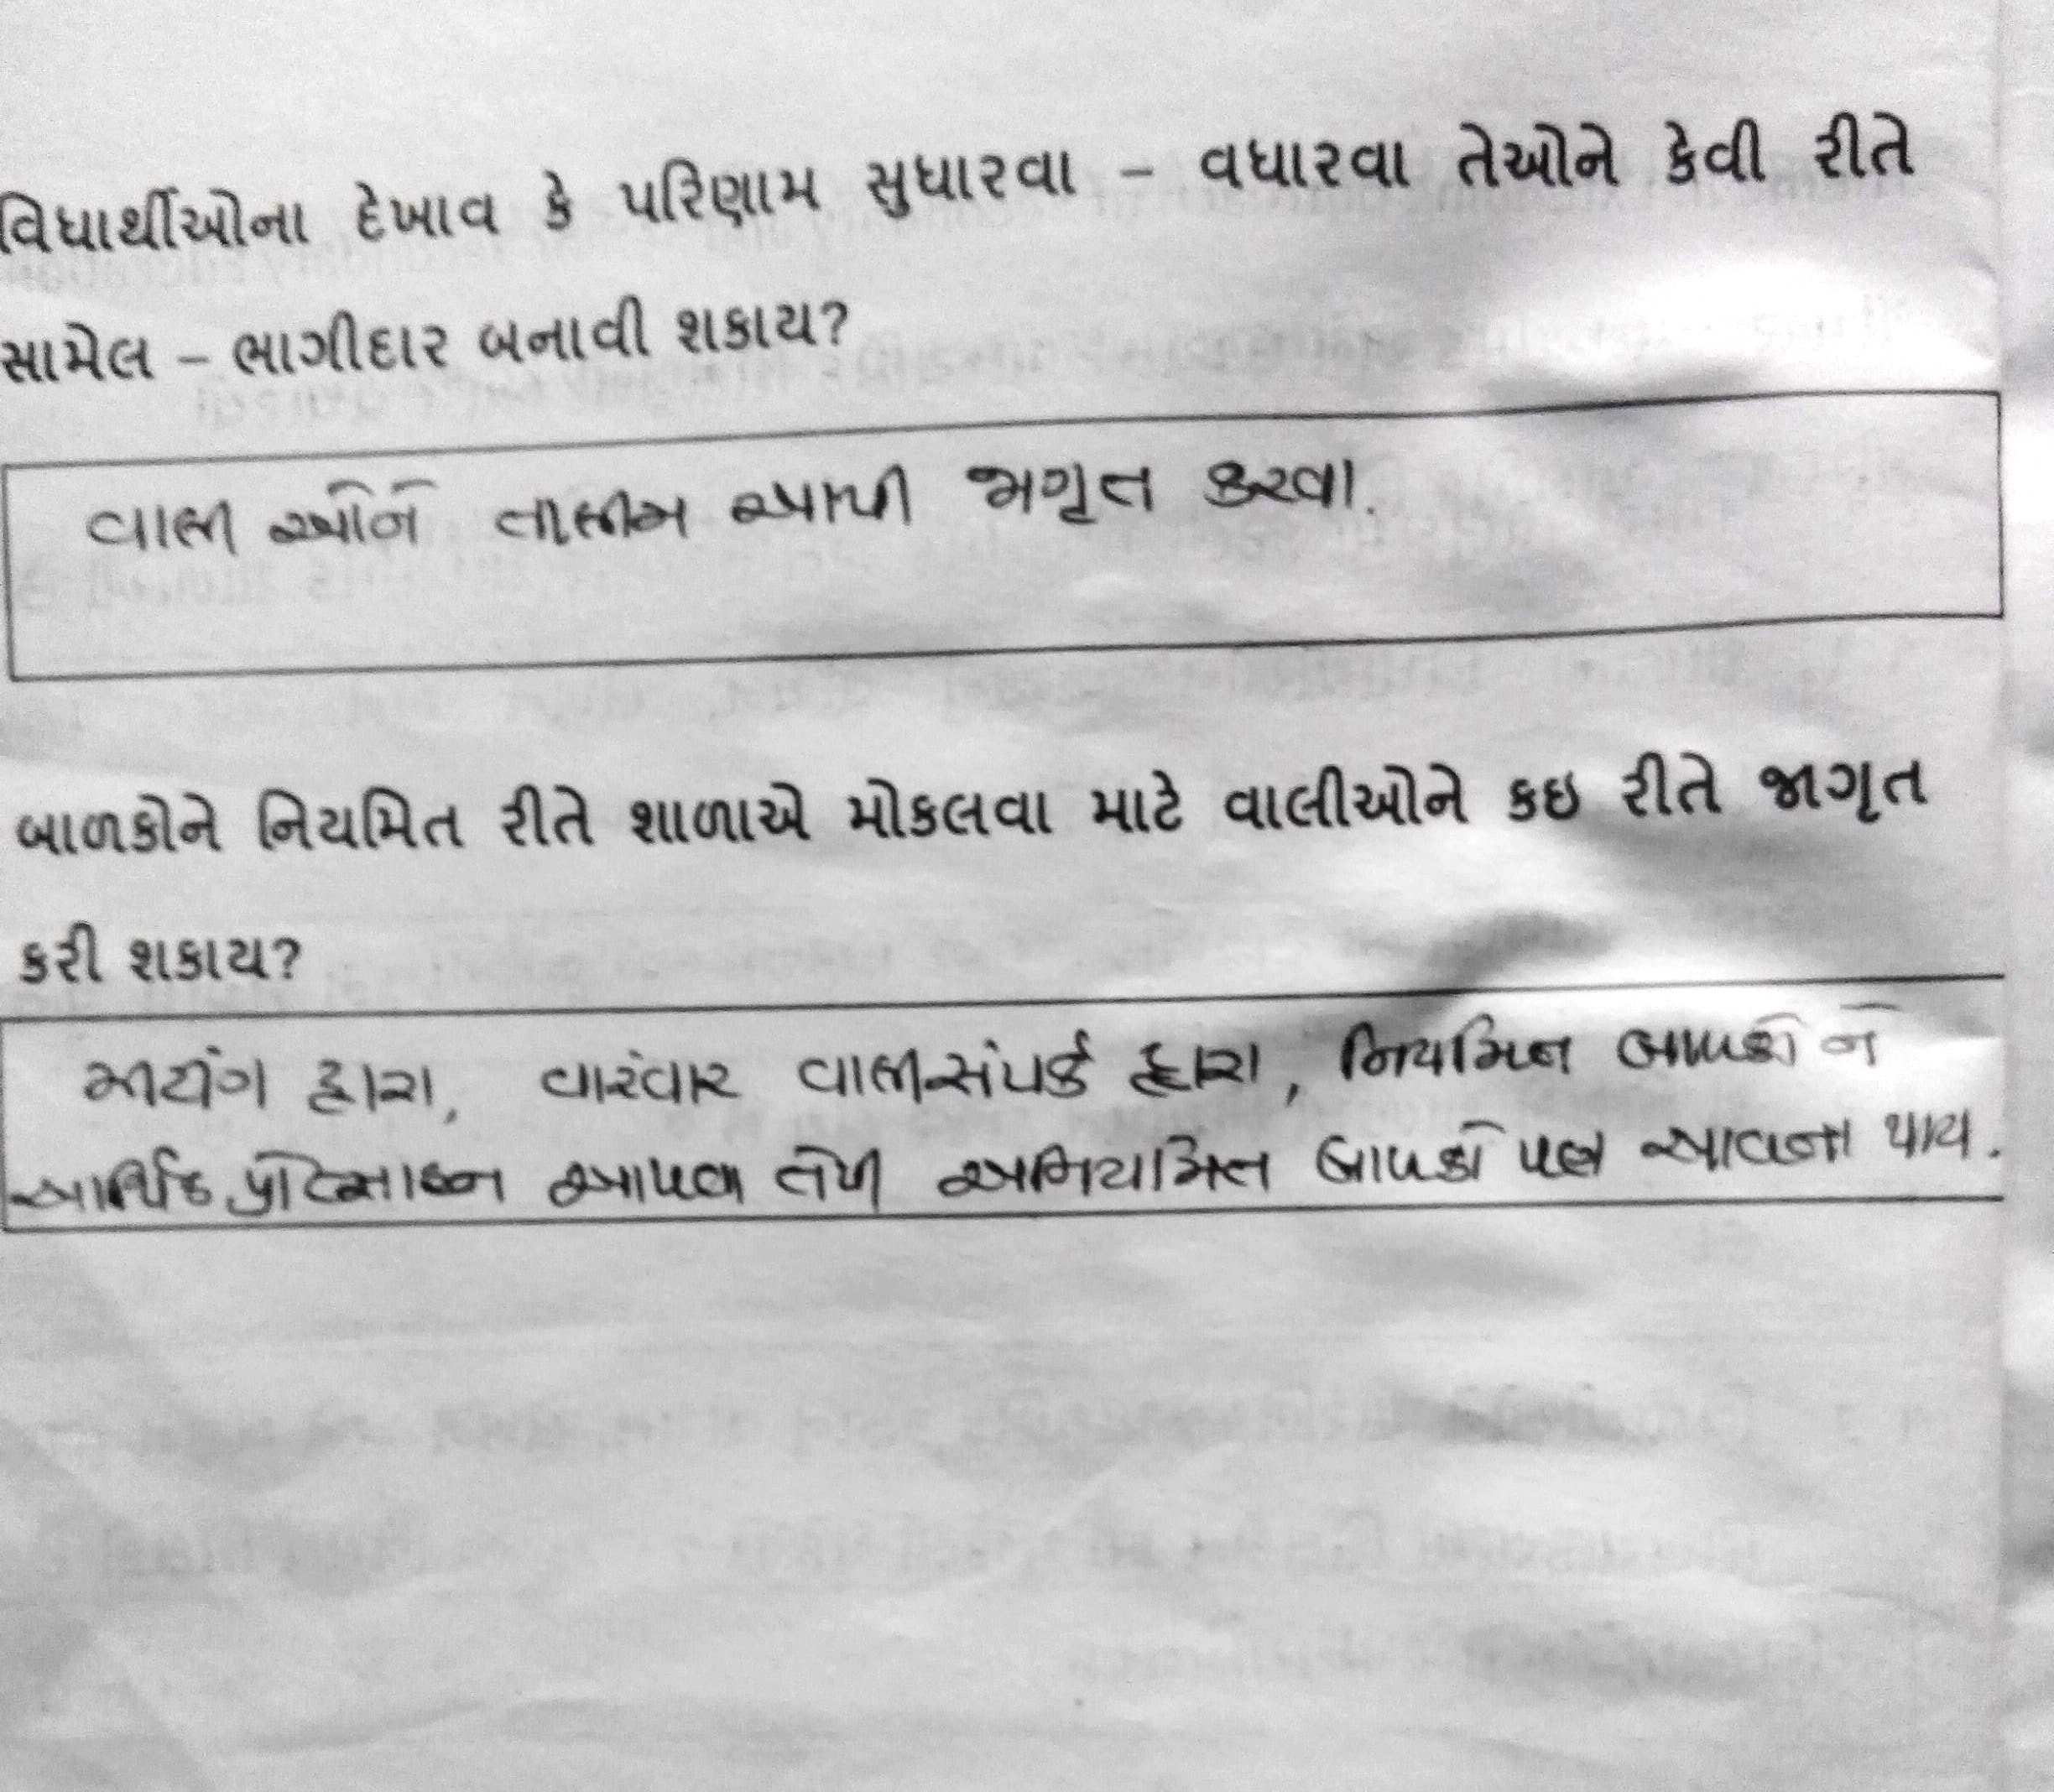 વિધાર્થીઓના દેખાવ કે પરિણામ સુધારવા – વધારવા તેઓને કેવી રીતે
સામેલ – ભાગીદાર બનાવી શકાય?
વાલી ઓને તાલીમ આપી જાગૃત કરવા.
બાળકોને નિયમિત રીતે શાળાએ મોકલવા માટે વાલીઓને કઇ રીતે જાગૃત
કરી શકાય?
મીટીંગ દ્વારા, વારંવાર વાલીસંપર્ક દ્વારા, નિયમિત બાળકો ને
આર્થિક પ્રોત્સાહન આપવા તેથી અનિયમિત બાળકો પણ આવતા થાય.